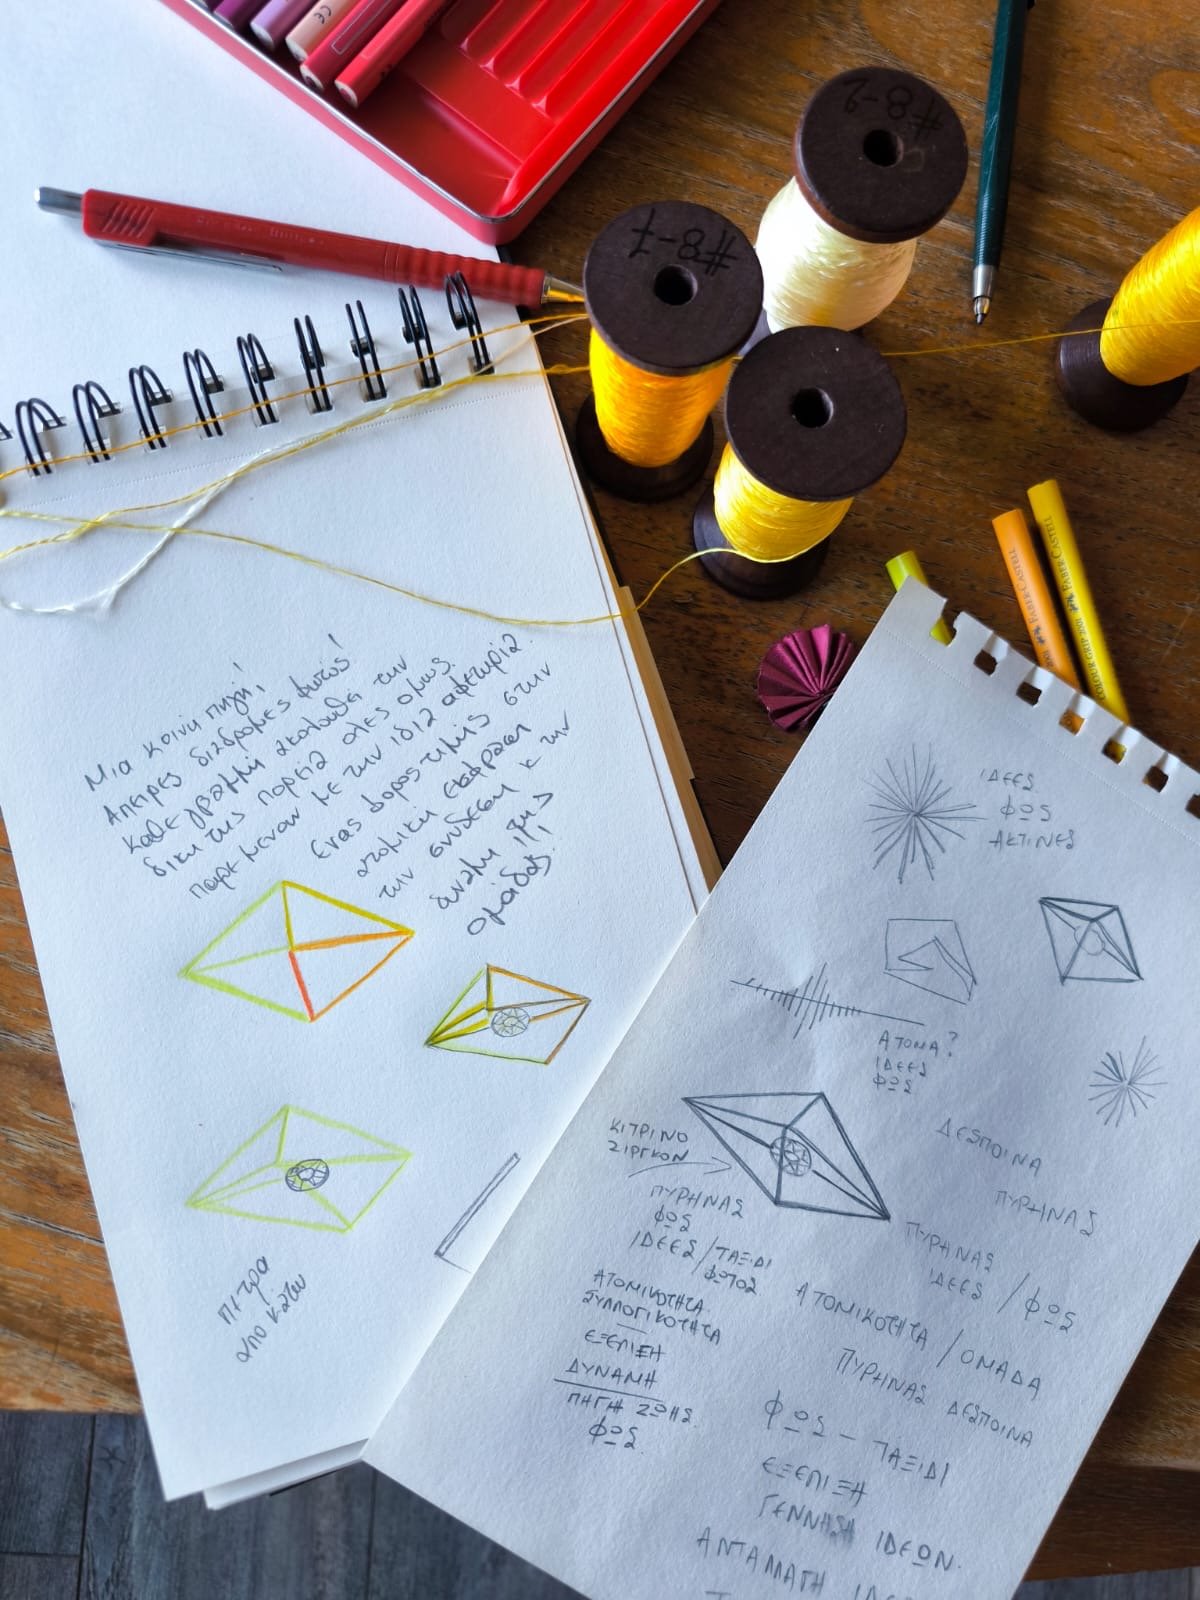 #8-2
#8-7
FABER-CASTELL
COLOUR GRIP 2001 FABER-CASTELL
Μια κοινή πηγή!
Άπειρες διαδρομές φωτός!
Κάθε γραμμή ακολουθά την
δική της πορεία όλες όμως
παραμένουν με την ίδια αφετηρία.
ένας φόρος τιμής στην
ατομική έκφραση
την σύνδεση κ την
δύναμη της
ομάδας!
πέτρα
από κάτω
ΙΔΕΕΣ
ΦΩΣ
ΑΚΤΙΝΕΣ
ΑΤΟΜΑ?
ΙΔΕΕΣ
ΦΩΣ
ΚΙΤΡΙΝΟ
ΖΙΡΓΚΟΝ
ΠΥΡΗΝΑΣ
ΦΩΣ
ΙΔΕΕΣ/ΤΑΞΙΔΙ
ΦΩΤΟΣ
ΑΤΟΜΙΚΟΤΗΤΑ
ΣΥΛΛΟΓΙΚΟΤΗΤΑ
ΕΞΕΛΙΞΗ
ΔΥΝΑΜΗ
ΠΗΓΗ ΖΩΗΣ
ΦΩΣ.
ΔΕΣΠΟΙΝΑ
ΠΥΡΗΝΑΣ
ΠΥΡΗΝΑΣ
ΙΔΕΕΣ / ΦΩΣ
ΑΤΟΜΙΚΟΤΗΤΑ / ΟΜΑΔΑ
ΠΥΡΗΝΑΣ ΔΕΣΠΟΙΝΑ
ΦΩΣ - ΤΑΞΙΔΙ
ΕΞΕΛΙΞΗ
ΓΕΝΝΗΣΗ ΙΔΕΩΝ.